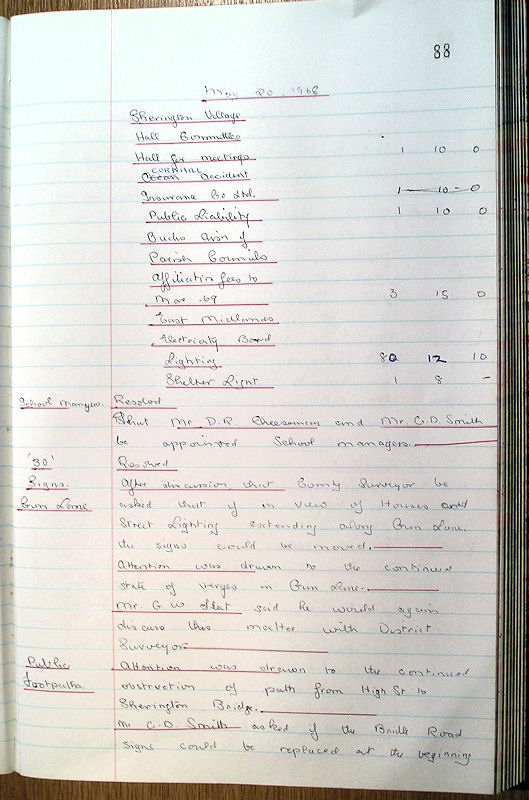 88
May 20. 1968
Sherington Village
Hall Committee
Hall for meetings 1 10 0
CORNHILL
Ocean Accident
Insurance Co Ltd. 1 10 - 0
Public Liability 1 10 0
Bucks Assn of
Parish Councils
Affiliation fees to
Mar. 69 3 15 0
East Midlands
Electricity Board
Lighting 80 12 10
Shelter Light 1 8 -
School Managers. Resolved
That Mr D.P. Cheeseman and Mr. C.D. Smith
be appointed School managers.
'30' Resolved
Signs. After discussion that County Surveyor be
Gun Lane asked that if in view of Houses and
Street Lighting extending along Gun Lane.
the signs could be moved.
Attention was drawn to the continued
state of verges in Gun Lane.
Mr G.W. said he would again
discuss this matter with District
Surveyor
Public Attention was drawn to the continued
footpaths. obstruction of path from High St to
Sherington Bridge.
Mr C.D. Smith asked if the Bridle Road
signs could be replaced at the beginning